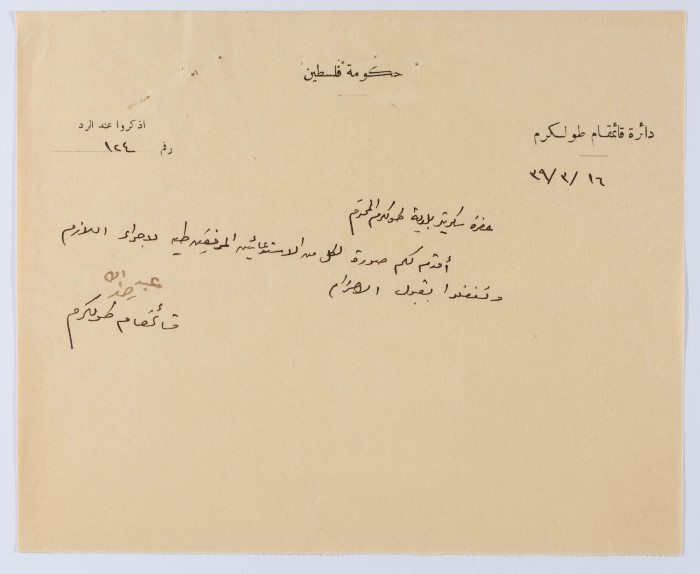 حكومة فلسطين
دائرة قائمقام طولكرم
اذكروا عند الرد
رقم ١٢٤
١٦ /٣/ ٣٩
حضرة سكرتير بلدية طولكرم المحترم
أقدم لكم صورة لكل من الاستدعائين المرفقين طيه لاجراء اللازم
وتفضلوا بقبول الاحترام
عبد الله
قائمقام طولكرم